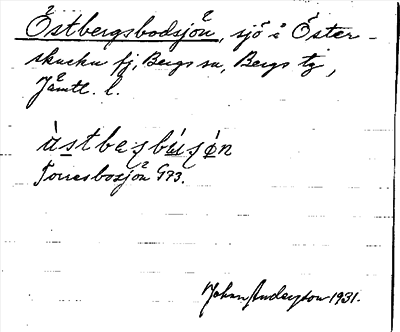 Östbergsbodsjön, sjö i Öster-
skucku fj, Bergs sn, Bergs tg,
Jämtl. l.
àstbeʒbúʒøn
Torresbosjön G73.
Johan Anderson 1931.